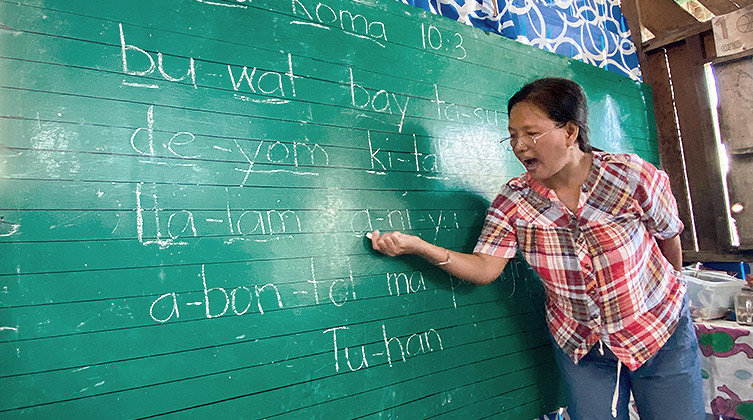 Roma 10:3
bu-wat bay ta-su
de-yom ki-ta
a-ni-yu
a-bon-tol ma
Tu-han